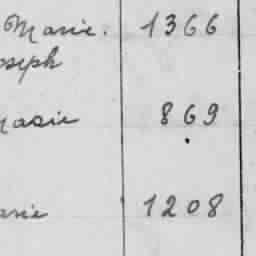 Marie. 1366
oseph
asie 869
arie 1208